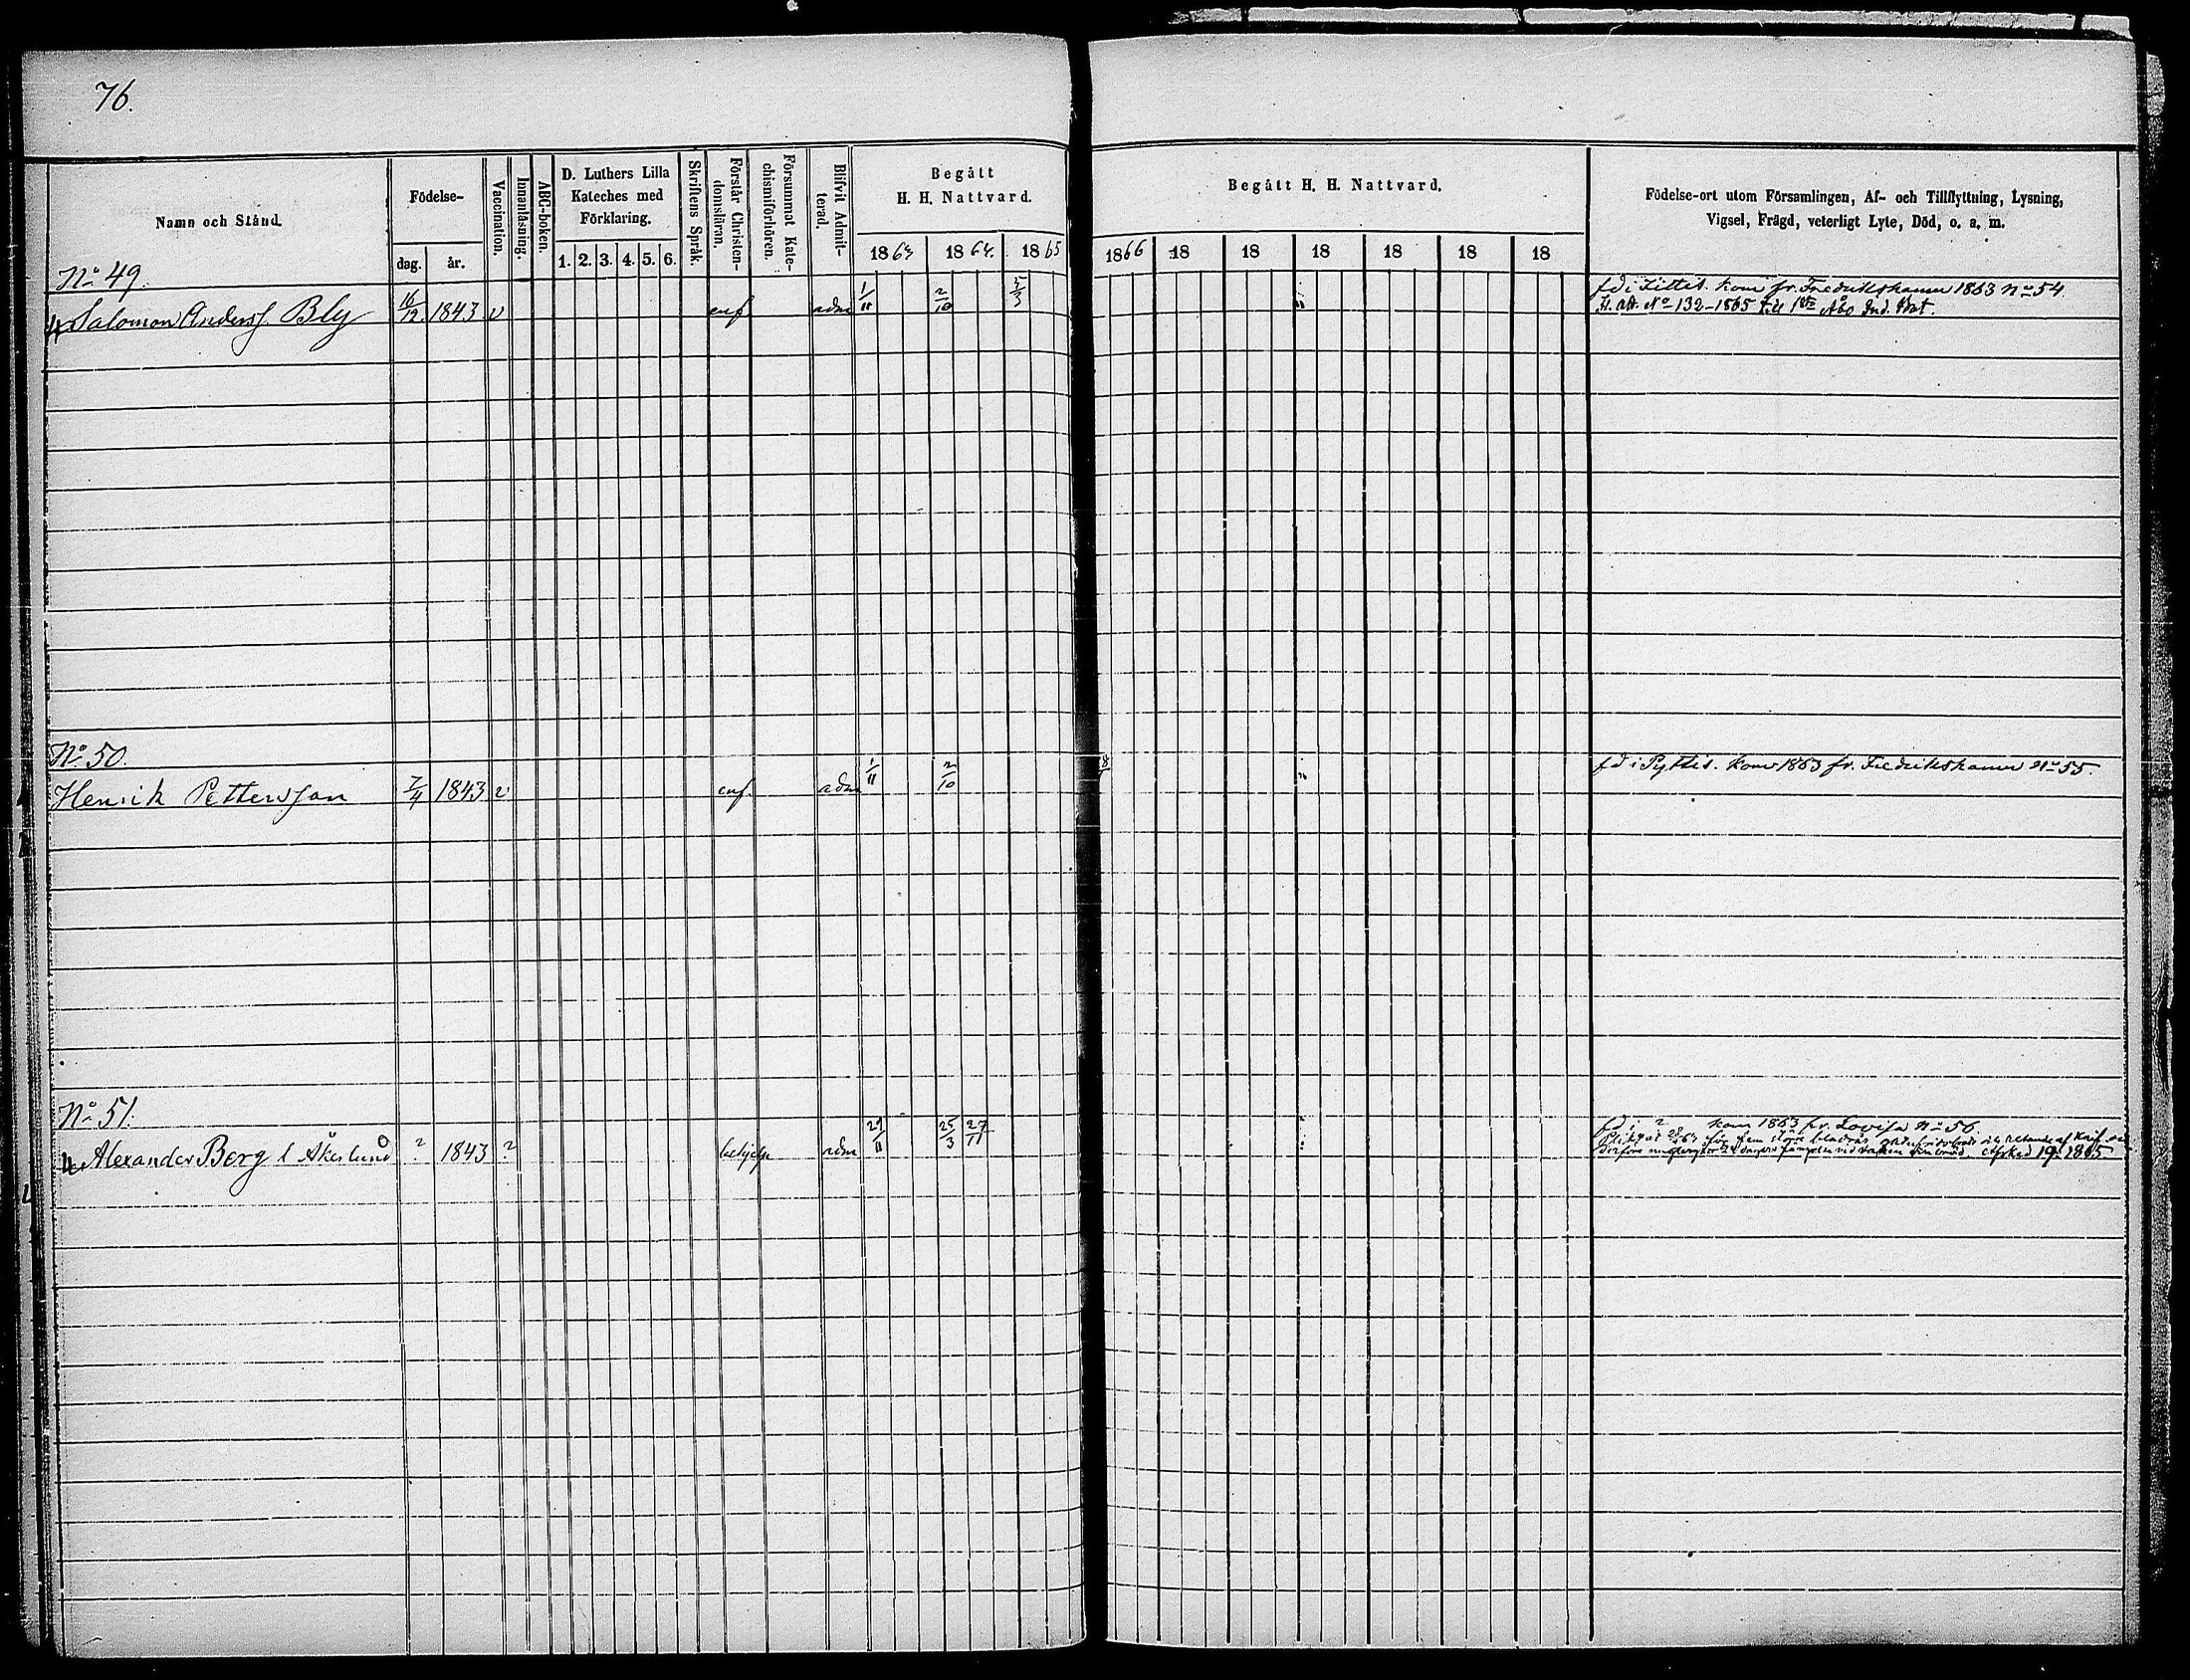 76.
Namn och Stånd.
Födelse-
dag.
år.
Vaccination.
Innanläsning.
ABC-boken.
D. Luthers Lilla
Kateches med
Förklaring.
1. 2. 3. 4. 5. 6.
Skriftens Språk.
Förstår Christen-
domsläran.
Försummat Kate-
chismiförhören.
Blifvit Admit-
terad.
Begått
H. H. Nattvard.
1863 1864. 1865
Begått H. H. Nattvard.
1866 18 18 18 18 18 18
Födelse-ort utom Församlingen, Af- och Tillflyttning, Lysning,
Vigsel, Frägd, veterligt Lyte, Död, o. a. m.
No 49.
Salomon Anderss. Bly 16/12 1843 v enf adm 1/11 2/10 5/3
fd i kom fr. Fredrikshamn 1863 No 54
att. No 132-1865 till 1sta Åbo Ind. Bat.
No 50.
Henrik Pettersson 7/4 1843 v enf. adm 1/11 2/10
fd i Pyttis. kom 1863 fr. Fredrikshamn No 55.
No 51.
Alexander Berg l Åkerlund ? 1843 ? behjelp adm 29/11 25/3 27/11
fd i ? kom 1863 fr. Lovisa No 56
för fem af
derföre 24 dagars fängelse vid vatten Afsked 1865